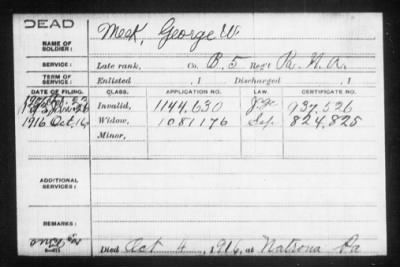 DEAD
NAME OF SOLDIER: Meek, George W.
SERVICE: Late rank, Co. B. 5 Reg't
TERM OF SERVICE: Enlisted , 1 Discharged , 1
DATE OF FILING. CLASS. APPLICATION NO. LAW. CERTIFICATE NO.
Invalid, 1144.630 937.526
1916 Oct. 16 Widow, 1081176 824.825
Minor,
ADDITIONAL SERVICES:
REMARKS:
Died Oct 4, 1916, at Natrona Pa